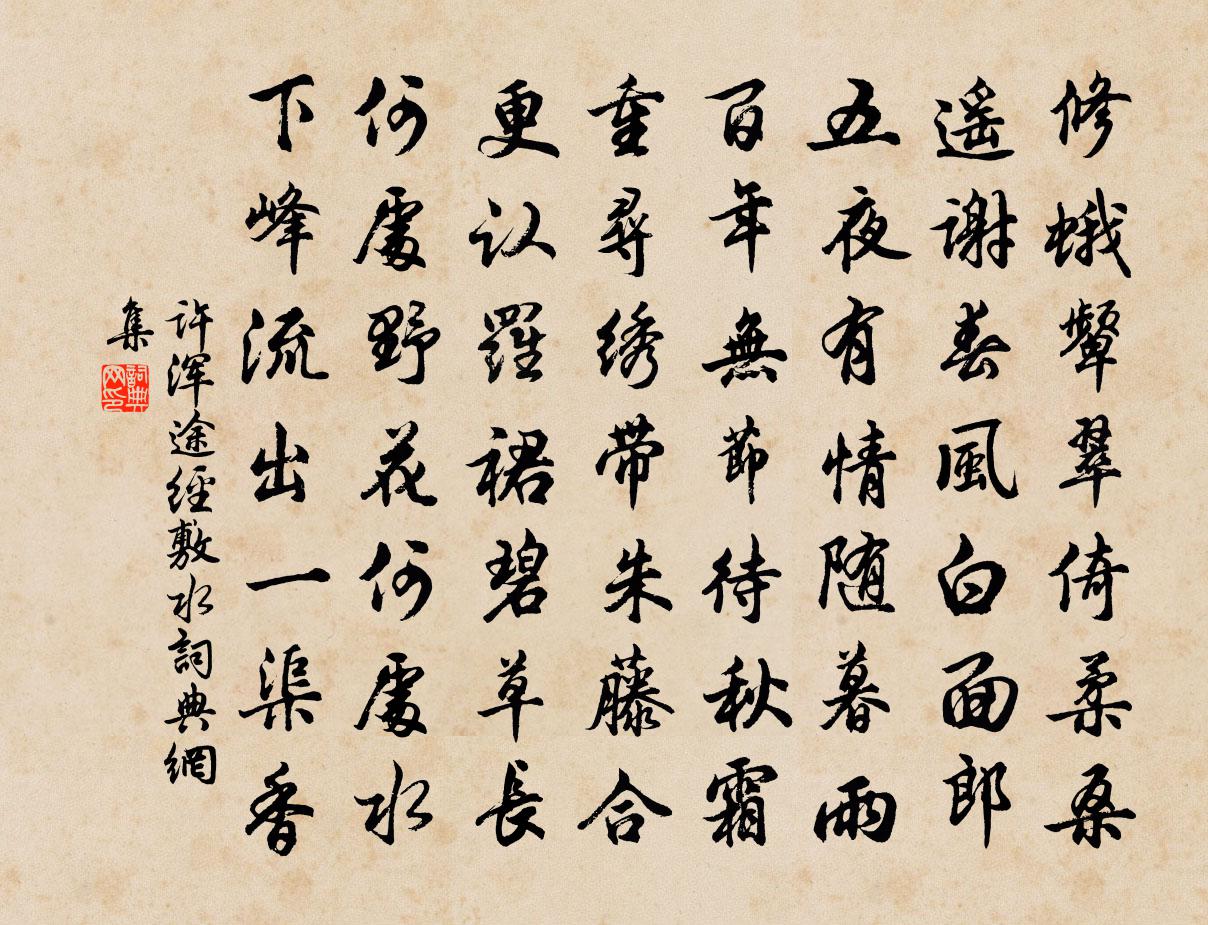 修蛾顰翠倚柔桑
遥謝春風白面郎
五夜有情随暮雨
百年無節待秋霜
重尋绣带朱藤合
更认羅裙碧草長
何處野花何處水
下峰流出一渠香
許渾途經敷水詞典網
集
詞典网印